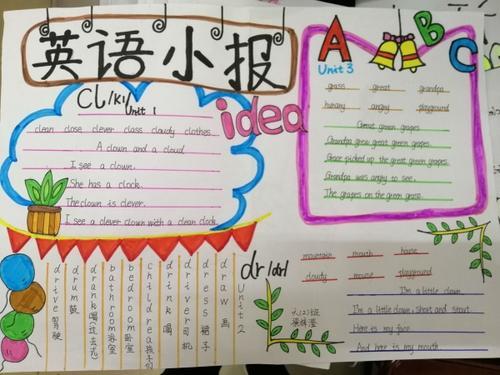 英语小报
CL/kl/
Unit 1
clean close clever class cloudy clothes
A clown and a cloud
I see a clown.
She has a clock.
The clown is clever.
I see a clever clown with a clean clock.
idea
A B C
Unit 3
grass great grandpa
hungry angry playground
Great green grapes
Grandpa grew great green grapes.
Grace picked up the great green grapes.
Grandpa was angry to see.
The grapes on the green grass.
drive 驾驶
drum 鼓
drank 喝(过去式)
bathroom 浴室
bedroom 卧室
children 孩子们
drink 喝
driver 司机
dress 裙子
draw 画
Unit 2
dr/dr/
mountain mouth house
cloudy mouse playground
I'm a little clown
I'm a little clown, short and stout
Here is my face
And here is my mouth
六(2)班